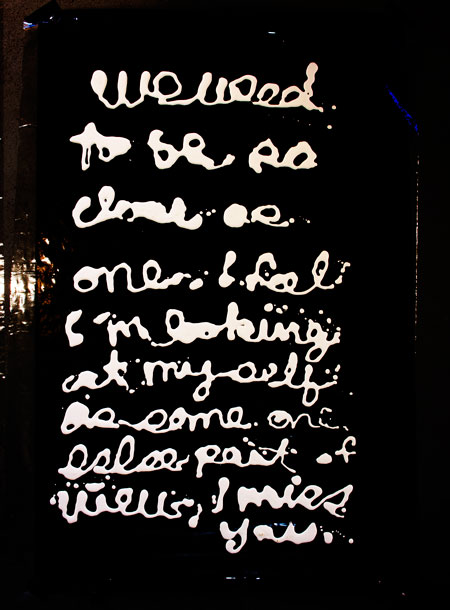 we used
to be so
close as
one. I feel
I'm looking
at my self
as some one
eslse part of
view, I miss
you.